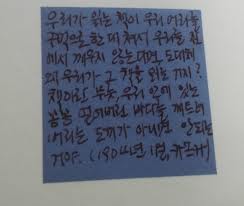 우리가 읽는 책이 우리 머리를
주먹으로 한 대 쳐서 우리를 잠
에서 깨우지 않는다면, 도대체
왜 우리가 그 책을 읽는 거지?
책이란 무릇, 우리 안에 있는
꽁꽁 얼어버린 바다를 깨트려
버리는 도끼가 아니면 안되는
거야. (1904년 1월, 카프카)